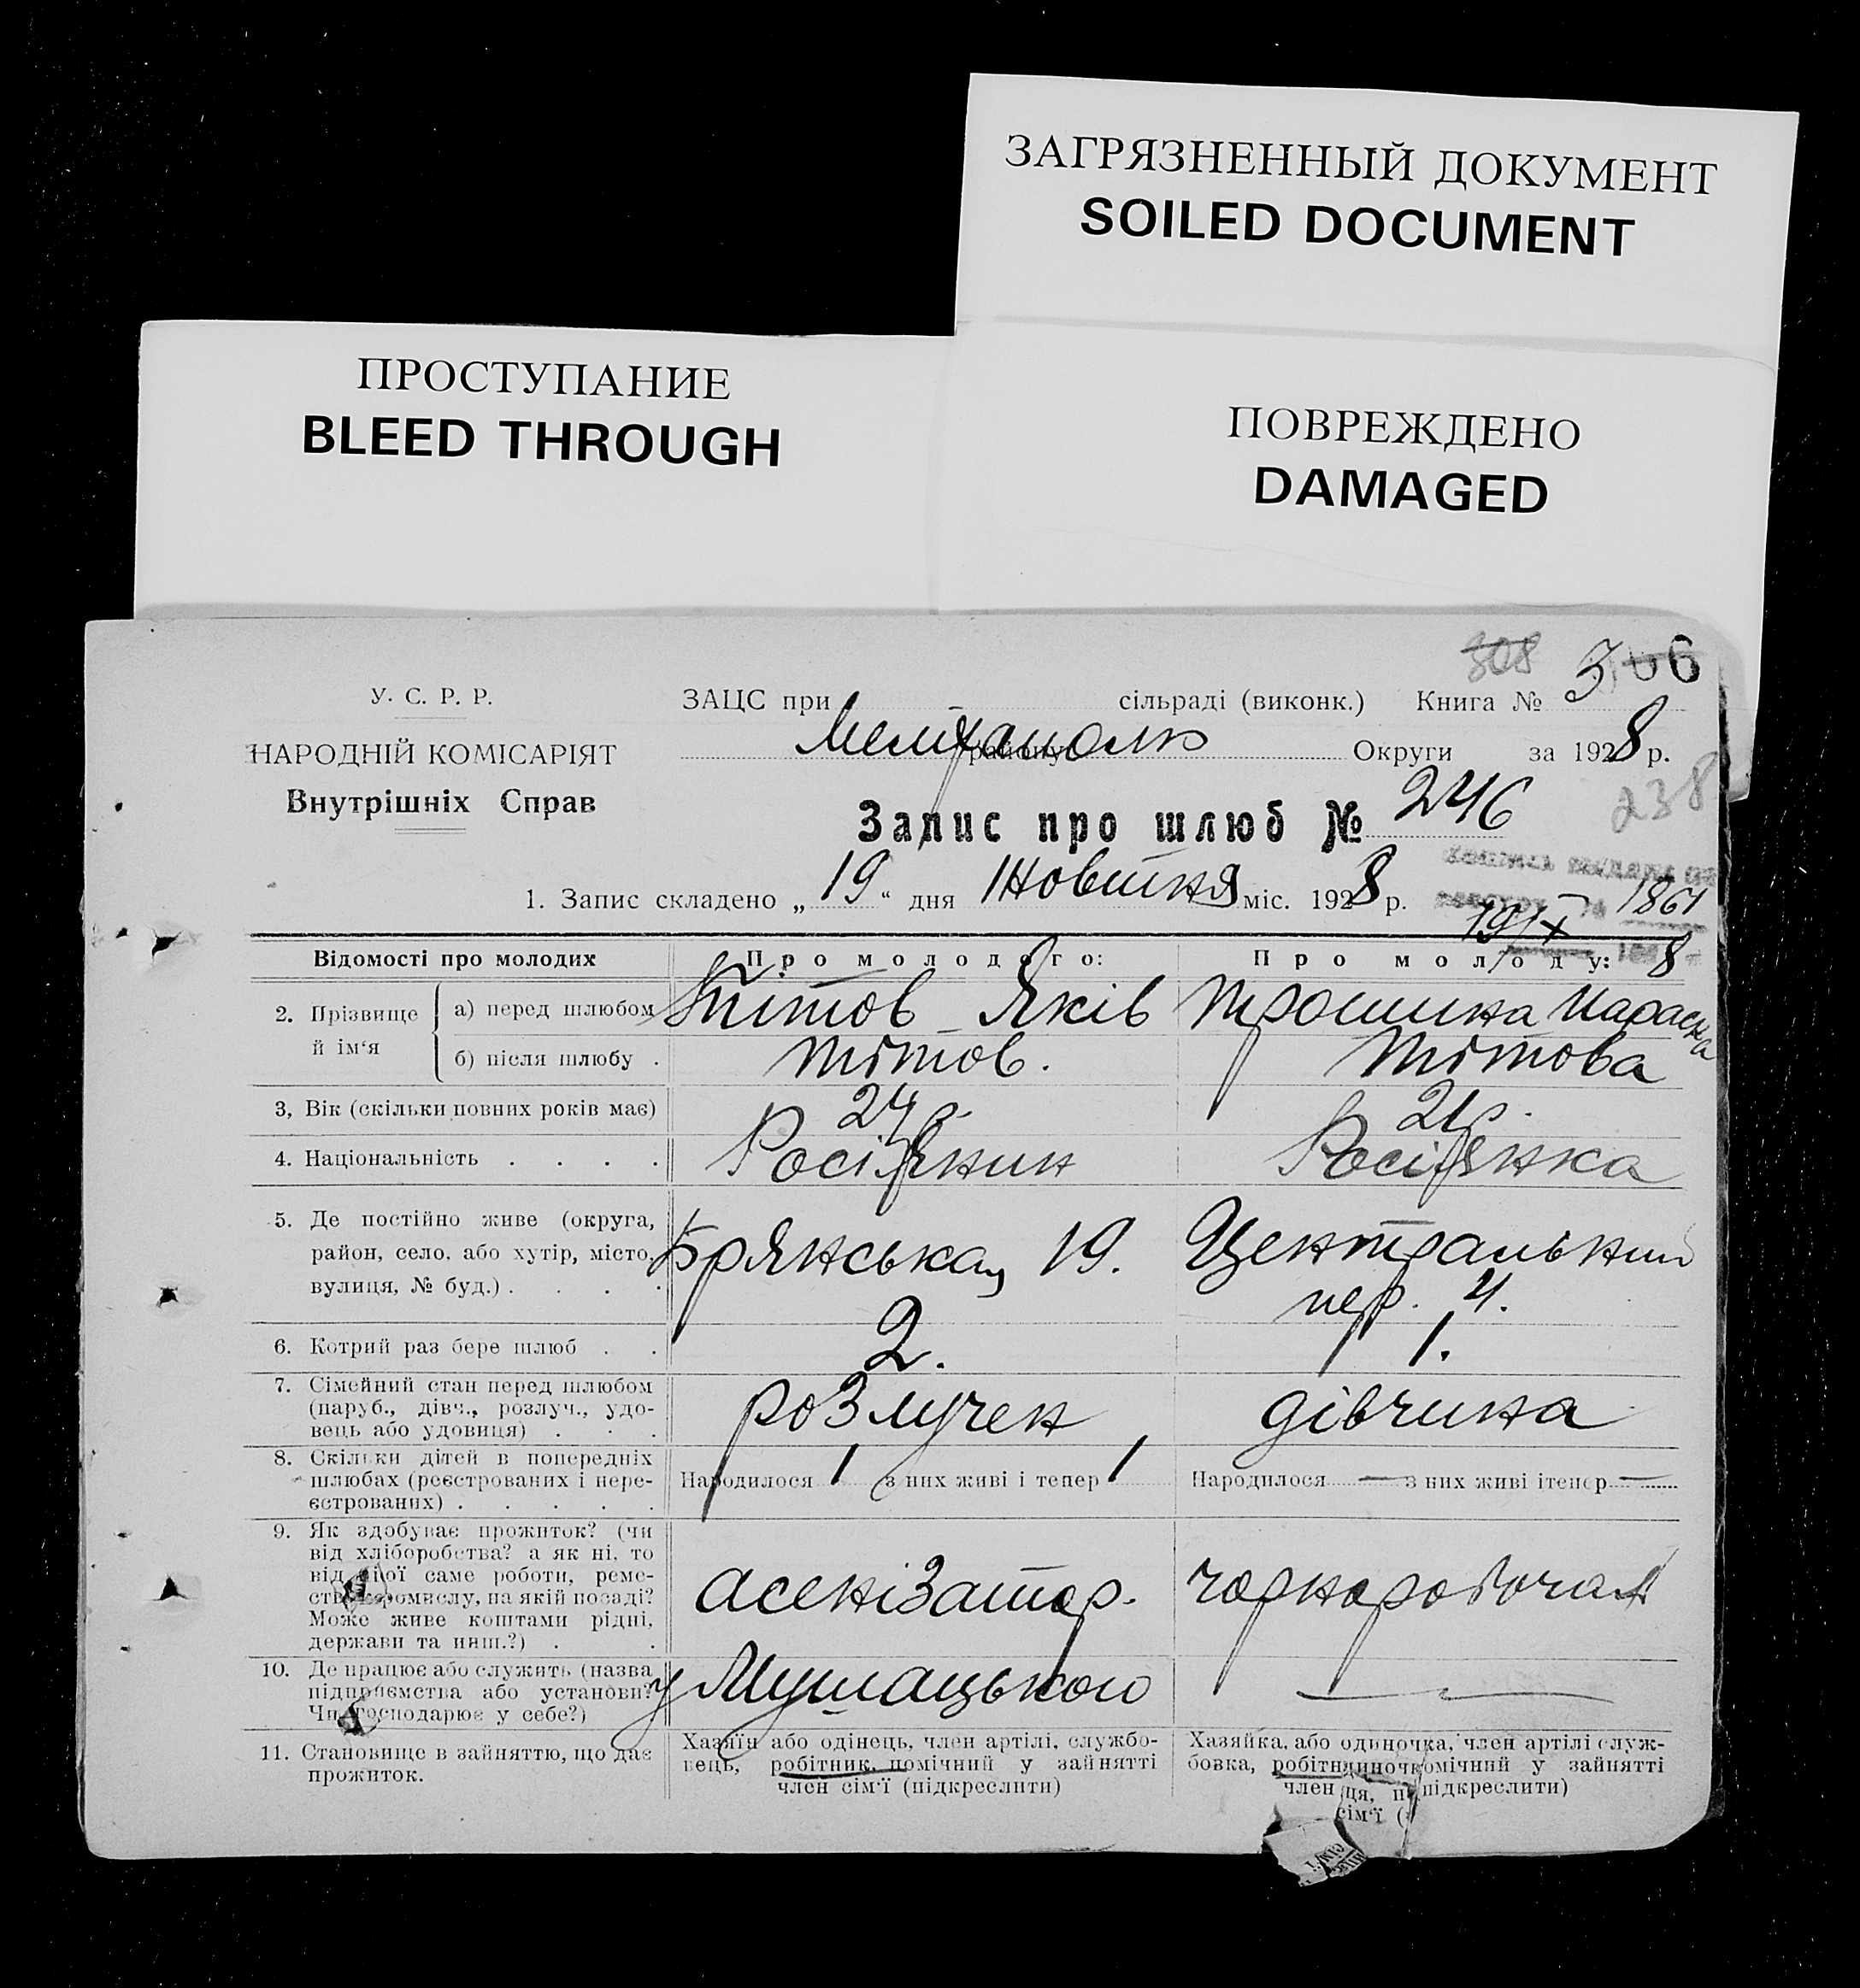 ЗАГРЯЗНЕННЫЙ ДОКУМЕНТ
SOILED DOCUMENT
ПРОСТУПАНИЕ
BLEED THROUGH
ПОВРЕЖДЕНО
DAMAGED
308
306
У. С. Р. Р.
НАРОДНІЙ КОМІСАРІЯТ
Внутрішніх Справ
ЗАЦС при сільраді (виконк.) Книга № 3
району Округи за 1928 р.
238
Запис про шлюб № 246
1. Запис складено „19“ дня Жовтня міс. 1928 р.
1861
19 X
8
Відомості про молодих
Про молодого:
Про молоду:
2. Прізвище й ім‘я
а) перед шлюбом
Тітов Яків
Трошина Параска
б) після шлюбу .
Тітов.
Тітова
3, Вік (скільки повних років має)
24 р.
21 р.
4. Національність . . . .
Росіянин
Росіянка
5. Де постійно живе (округа,
район, село, або хутір, місто,
вулиця, № буд.) . . . .
Брянська, 19.
Центральний
пер. 4.
6. Котрий раз бере шлюб . .
2.
1.
7. Сімейний стан перед шлюбом
(паруб., дівч., розлуч., удо-
вець або удовиця) . . .
розлучен
дівчина
8. Скільки дітей в попередніх
шлюбах (реєстрованих і нере-
єстрованих) . . . . .
Народилося 1 з них живі і тепер 1
Народилося — з них живі і тепер —
9. Як здобуває прожиток? (чи
від хліборобства? а як ні, то
від якої саме роботи, реме-
ства, промислу, на якій посаді?
Може живе коштами рідні,
держави та инш.?) . .
асенізатор.
чорноробочая
10. Де працює або служить (назва
підприємства або установи?
Чи господарює у себе?)
у
—
11. Становище в зайняттю, що дає
прожиток.
Хазяїн або одінець, член артілі, службо-
вець, робітник, помічний у зайнятті
член сім‘ї (підкреслити)
Хазяйка, або одиночка, член артілі служ-
бовка, помічний у зайнятті
член підкреслити)
сім‘ї (